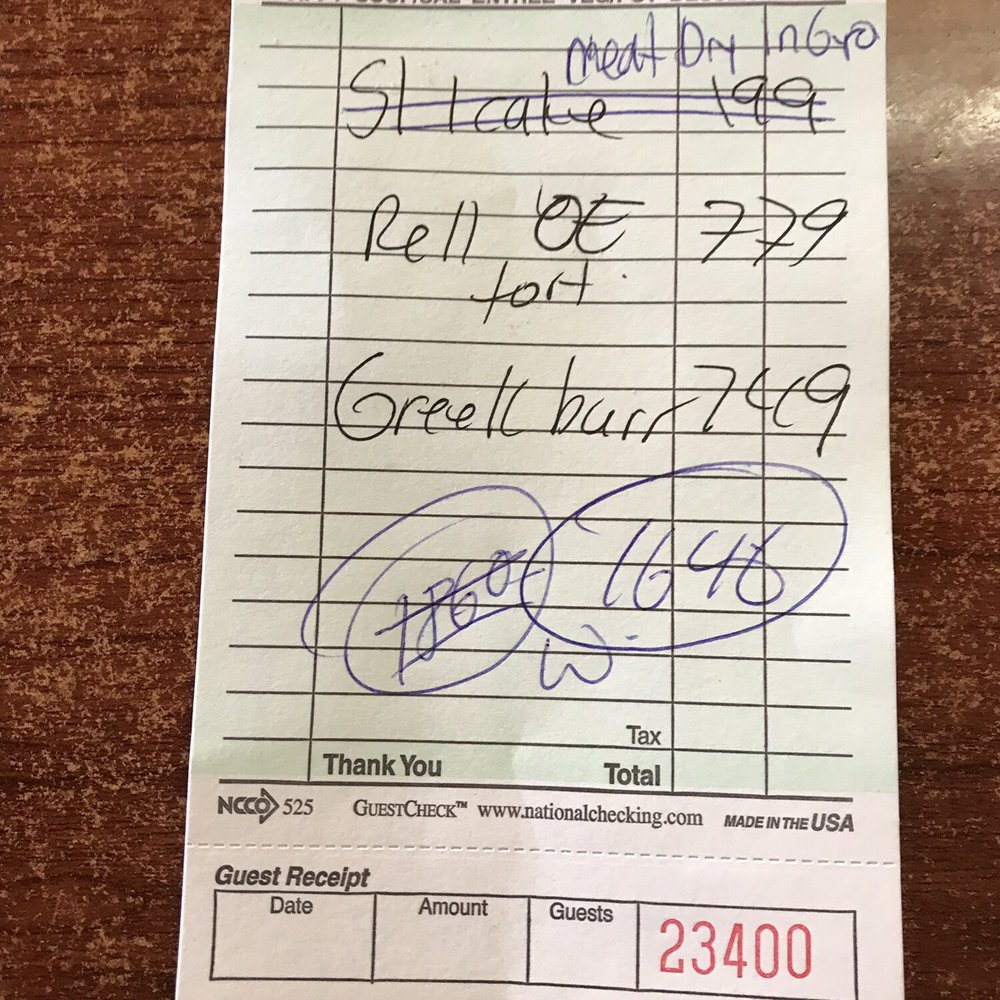 meat Dry In Gyo
St 1 cake 199
Rell OE 779
tort
Greek burr 749
1646
W
Tax
Thank You Total
NCCO 525 GUESTCHECK™ www.nationalchecking.com MADE IN THE USA
Guest Receipt
Date Amount Guests 23400